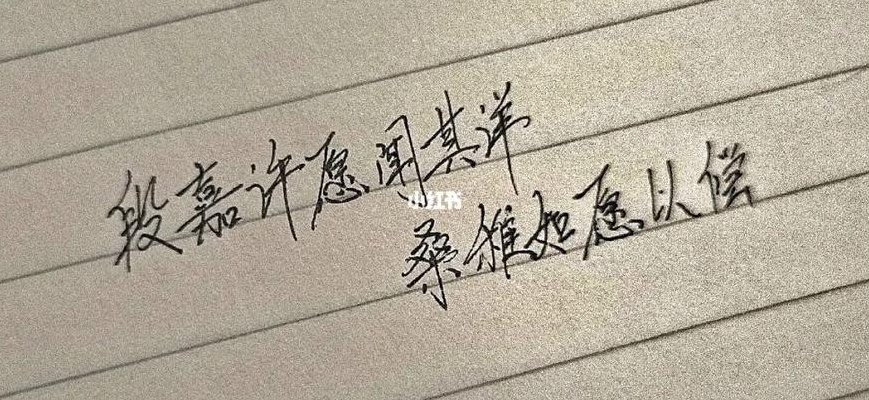 段嘉许愿闻其详
小红书
桑稚如愿以偿